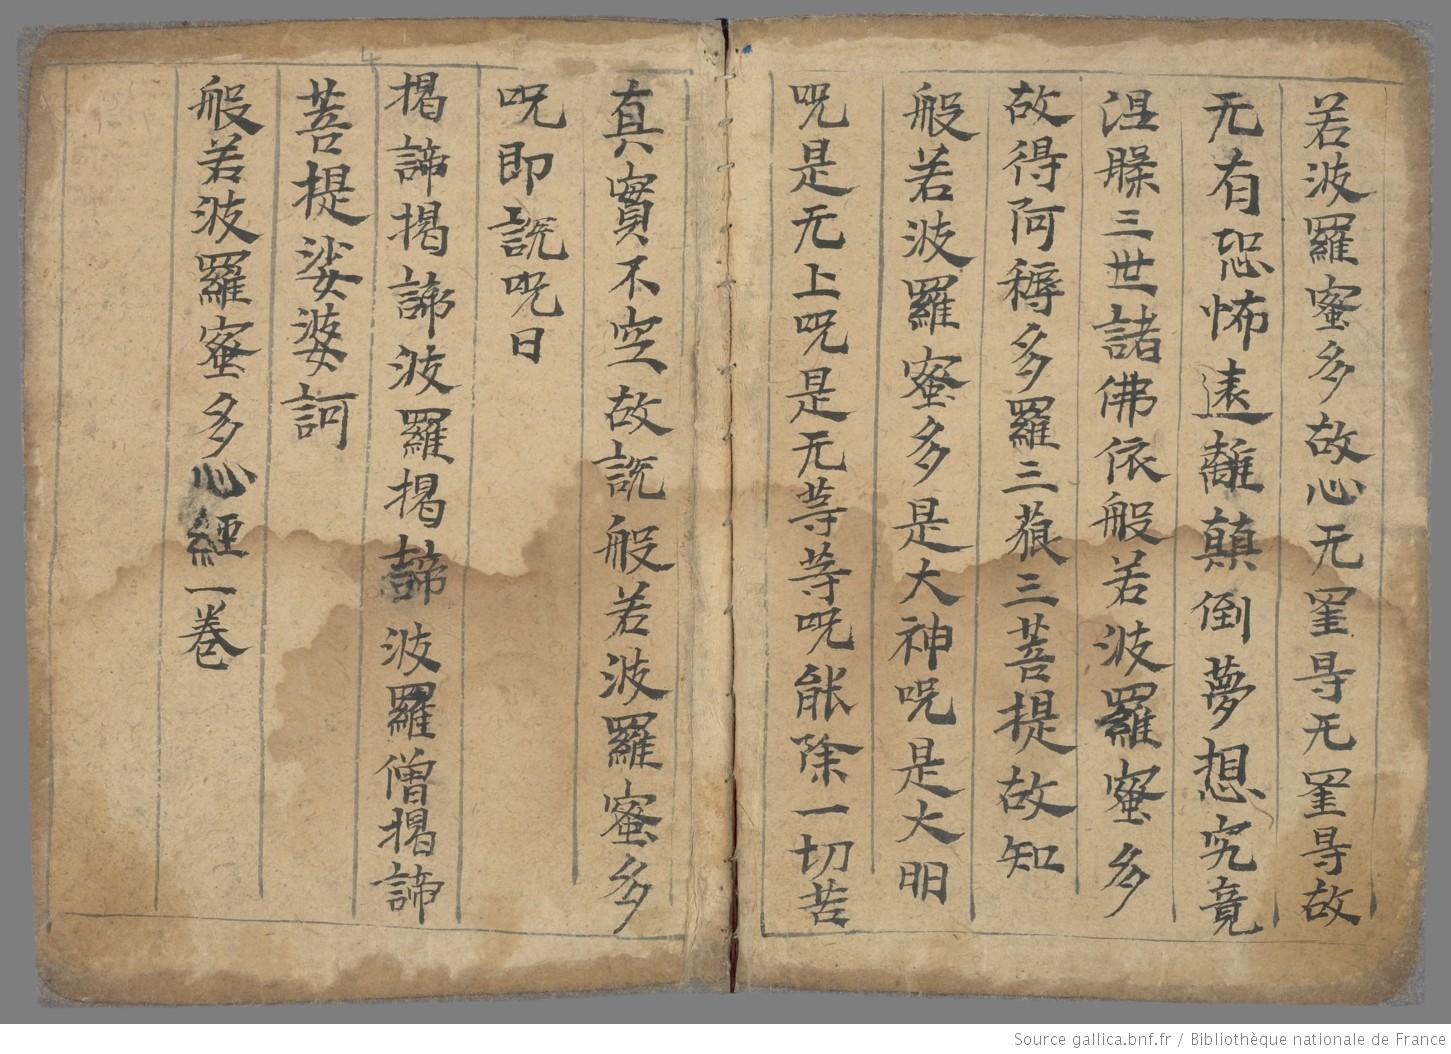 若波羅蜜多故心无罣㝵无罣㝵故
无有恐怖遠離顛倒夢想究竟
涅槃三世諸佛依般若波羅蜜多
故得阿耨多羅三藐三菩提故知
般若波羅蜜多是大神呪是大明
呪是无上呪是无等等呪能除一切苦
真實不空故說般若波羅蜜多
呪即說呪曰
揭諦揭諦波羅揭諦波羅僧揭諦
菩提娑婆訶
般若波羅蜜多心經一卷
Source gallica.bnf.fr / Bibliothèque nationale de France